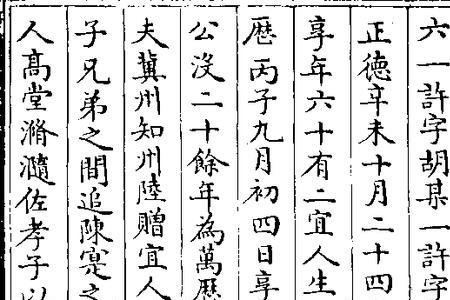 六一許字胡某一許字
正德辛未十月二十四
享年六十有二宜人生
歷丙子九月初四日享
公沒二十餘年為萬歷
夫冀州知州陞贈宜人
子兄弟之間追陳寔之
人高堂滫瀡佐孝子以